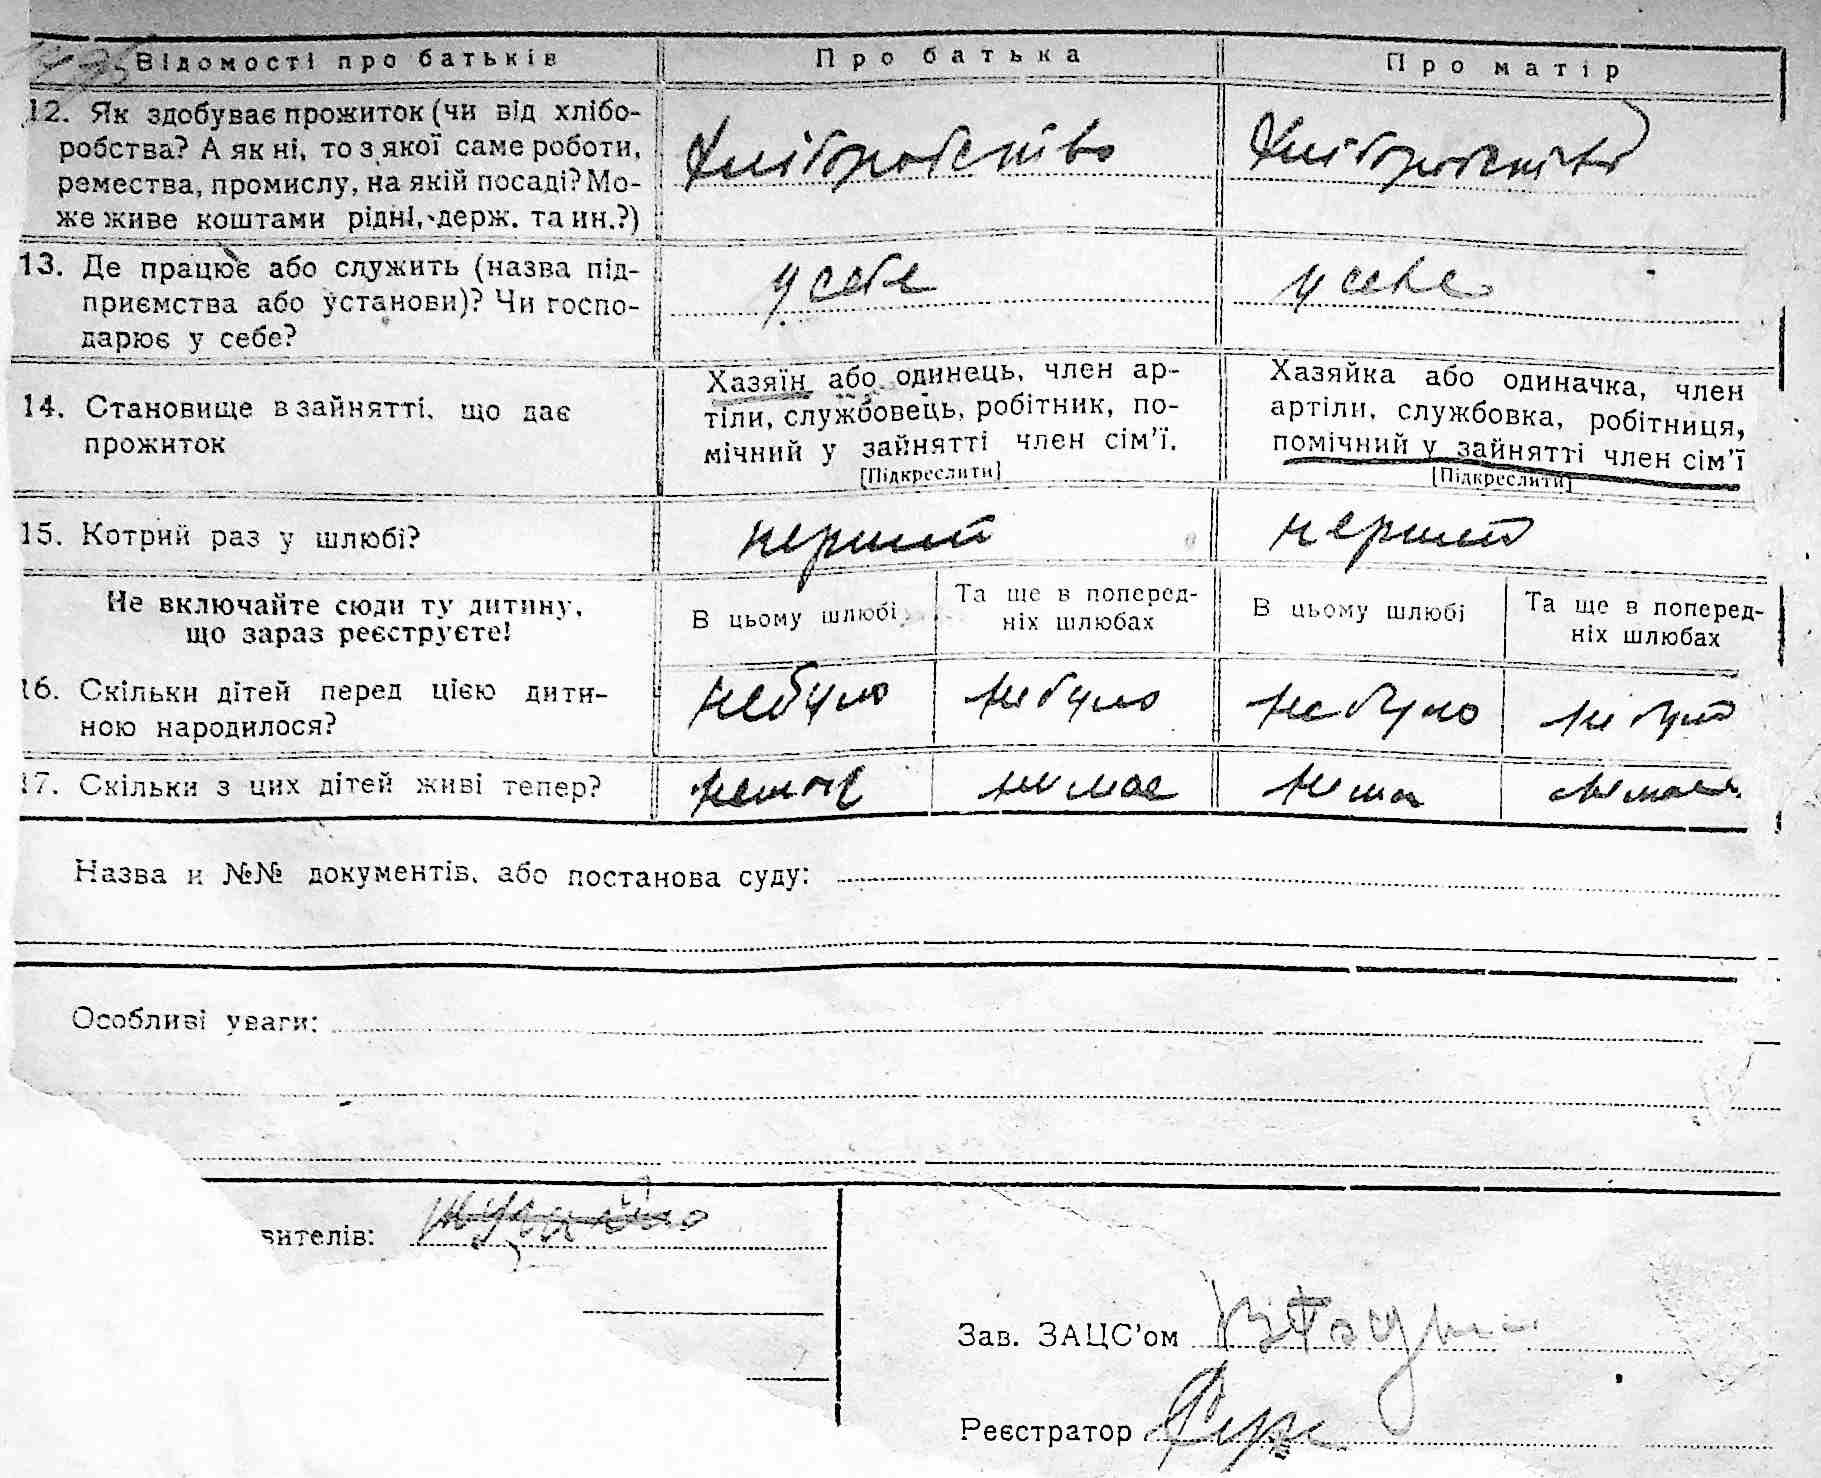 Відомості про батьків Про батька Про матір
12. Як здобуває прожиток (чи від хлібо-
робства? А як ні, то з якої саме роботи,
ремества, промислу, на якій посаді? Мо-
же живе коштами рідні, держ. та ин.?)
Хліборобство Хліборобство
13. Де працює або служить (назва під-
приємства або установи)? Чи госпо-
дарює у себе?
у себе у себе
14. Становище в зайнятті, що дає
прожиток
Хазяїн або одинець, член ар-
тіли, службовець, робітник, по-
мічний у зайнятті член сім’ї.
[Підкреслити]
Хазяйка або одиначка, член
артіли, службовка, робітниця,
помічний у зайнятті член сім’ї
[Підкреслити]
15. Котрий раз у шлюбі?
перший перший
Не включайте сюди ту дитину,
що зараз реєструєте!
В цьому шлюбі
Та ще в поперед-
ніх шлюбах
В цьому шлюбі
Та ще в поперед-
ніх шлюбах
16. Скільки дітей перед цією дити-
ною народилося?
небуло небуло небуло небуло
17. Скільки з цих дітей живі тепер?
немає немає нема немає
Назва и №№ документів, або постанова суду:
Особливі уваги:
вителів:
Зав. ЗАЦС’ом
Реєстратор